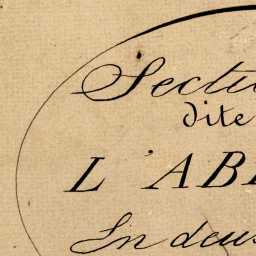 Secti
dite
L'AB
En deux